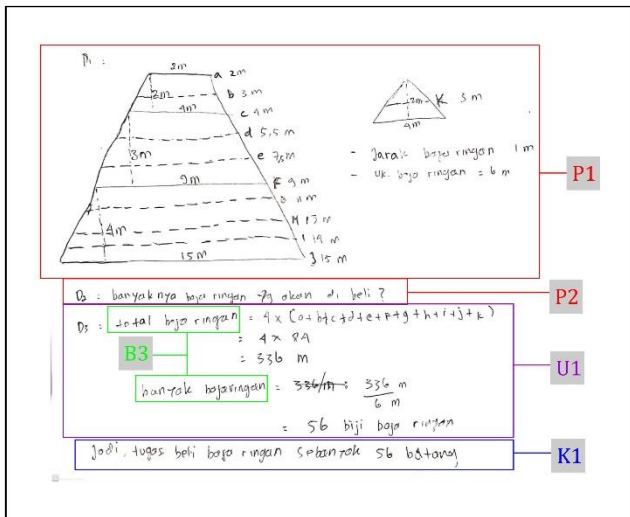 D1 :
2m
a 2m
2m
b 3m
4m
c 4m
d 5,5 m
3m
e 7,5 m
9m
F 9 m
11 m
4m
H 13 m
i 14 m
15m
j 15 m
2m
K 3 m
4m
- Jarak baja ringan 1 m
- uk. baja ringan = 6 m
P1
D2 : banyaknya baja ringan yg akan di beli ?
P2
D3 : total baja ringan = 4 x (a+b+c+d+e+f+g+h+i+j+k)
= 4 x 84
= 336 m
B3
U1
banyak bajaringan = 336/m : 336 m
6 m
= 56 biji baja ringan
Jadi, tugas beli baja ringan sebanyak 56 batang
K1